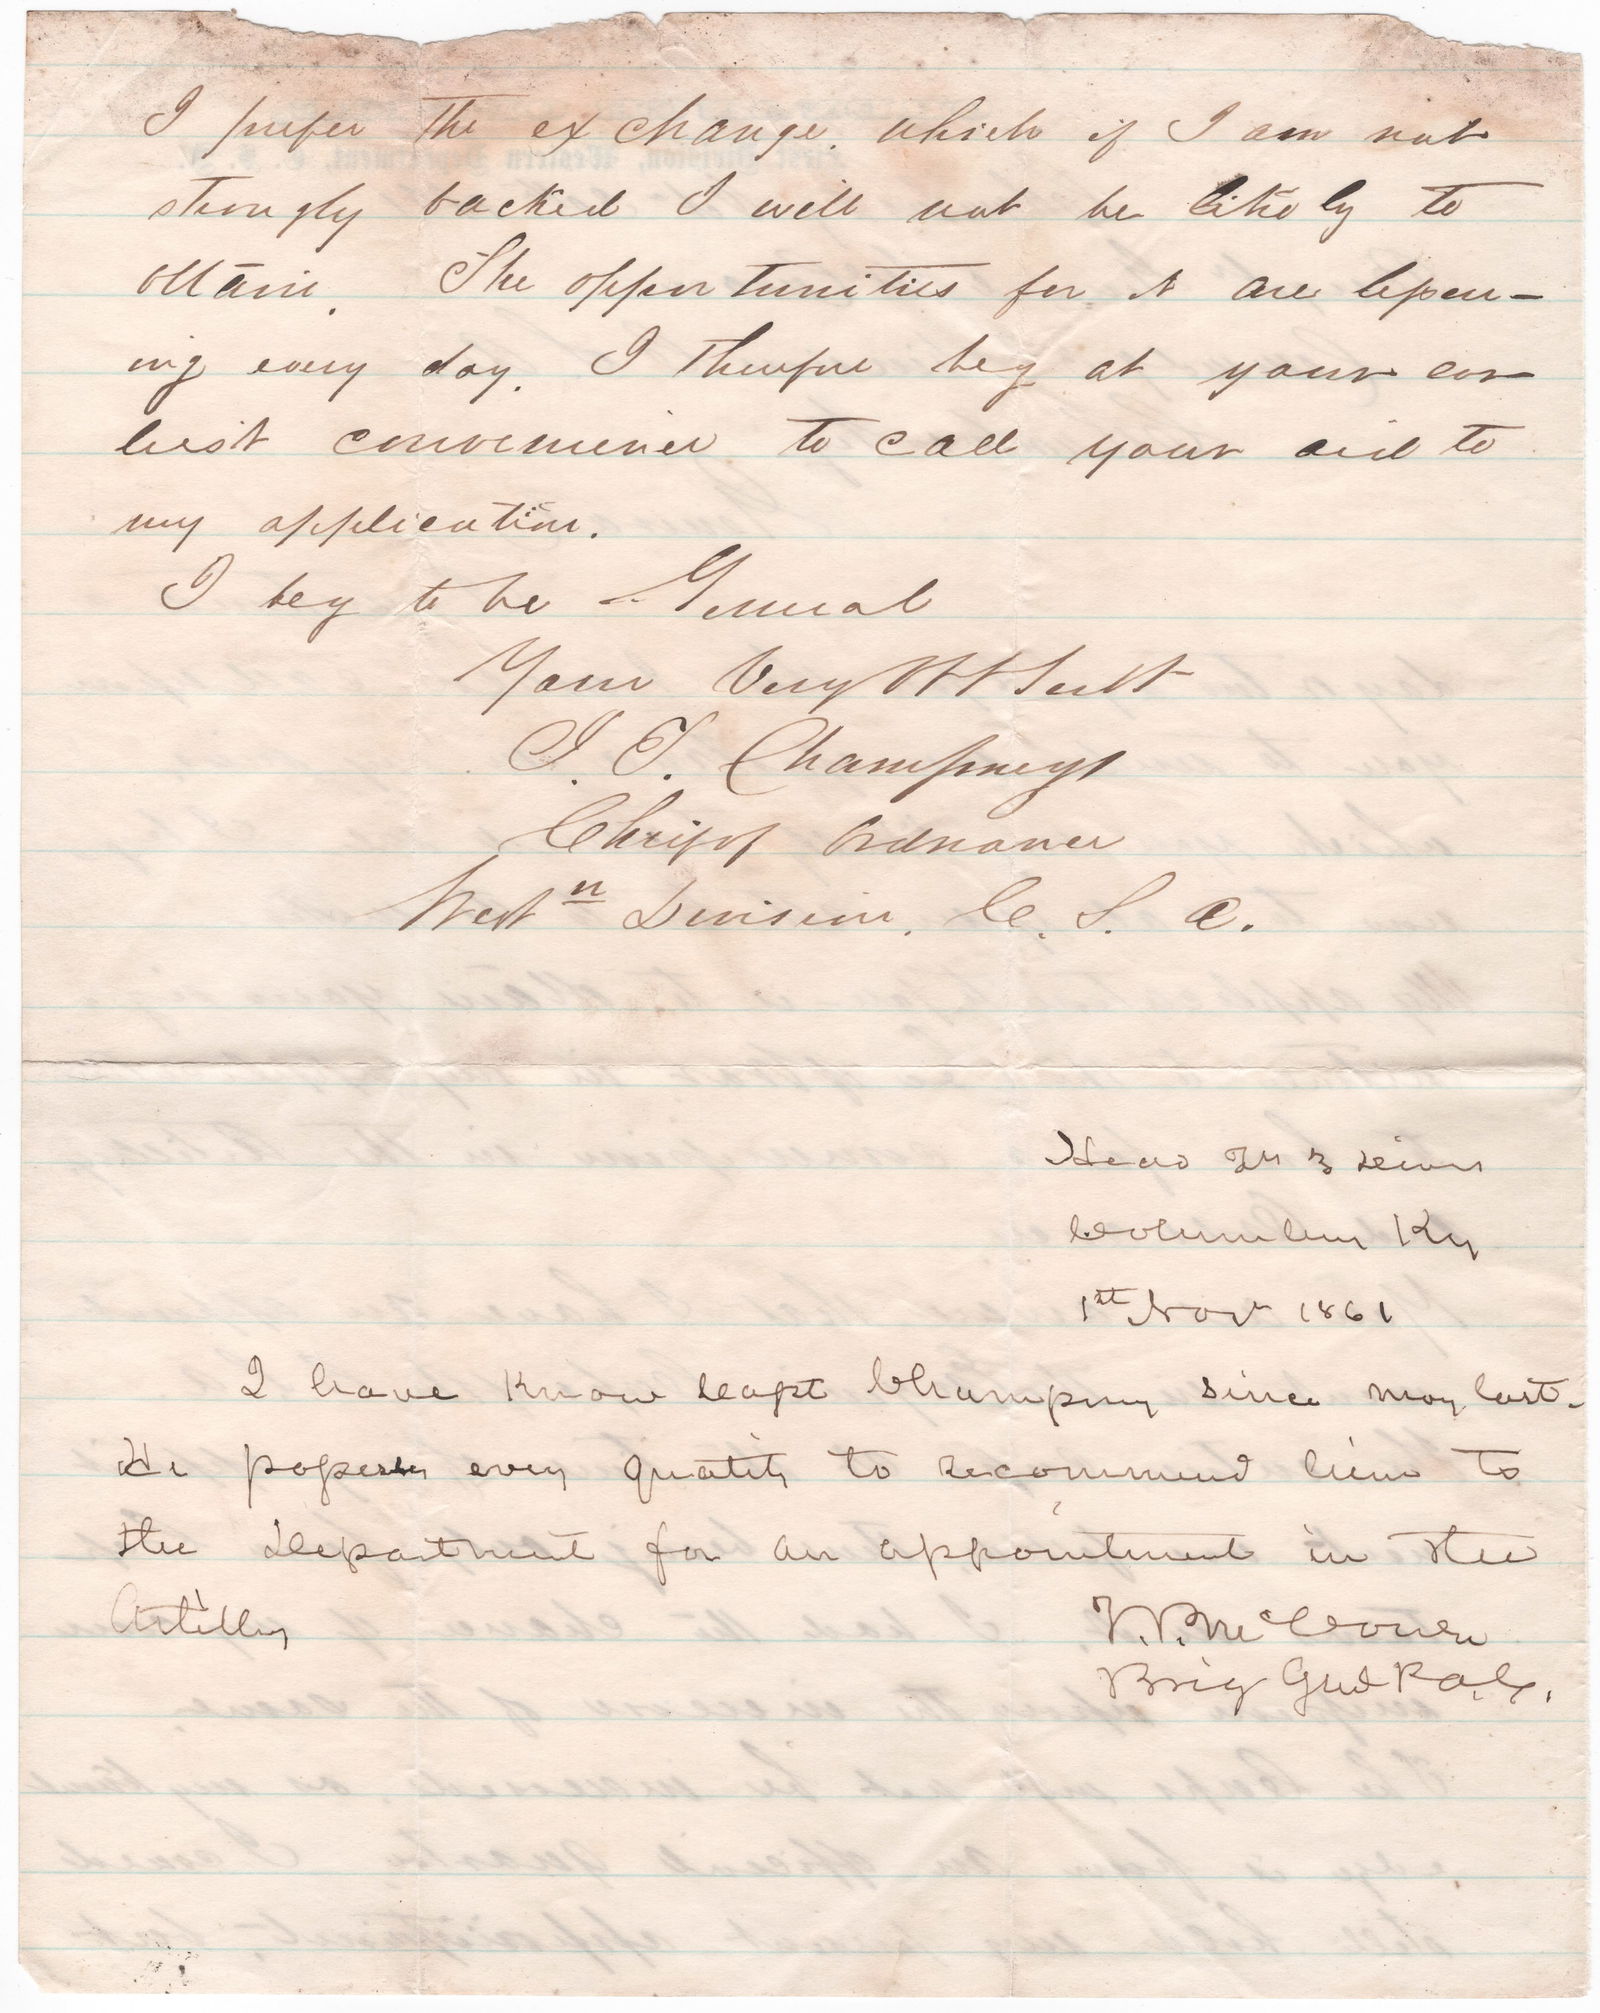 I prefer the exchange, which if I am not
strongly backed I will not be likely to
obtain. The opportunities for it are open-
ing every day. I therefore beg at your ear
liest convenience to call your aid to
my application.
I beg to be General
Your Very Obt Servt
J. T. Champneys
Chief of Ordnance
West n Division. C. S. A.
Head Qrs 3 Divn
Columbus Ky
1st Novr 1861
I have know Capt Champney since may last.
He posesses every quality to recommend him to
the Department for an appointment in the
Artillery
J. P. McCown
Brig Genl P.A.C.